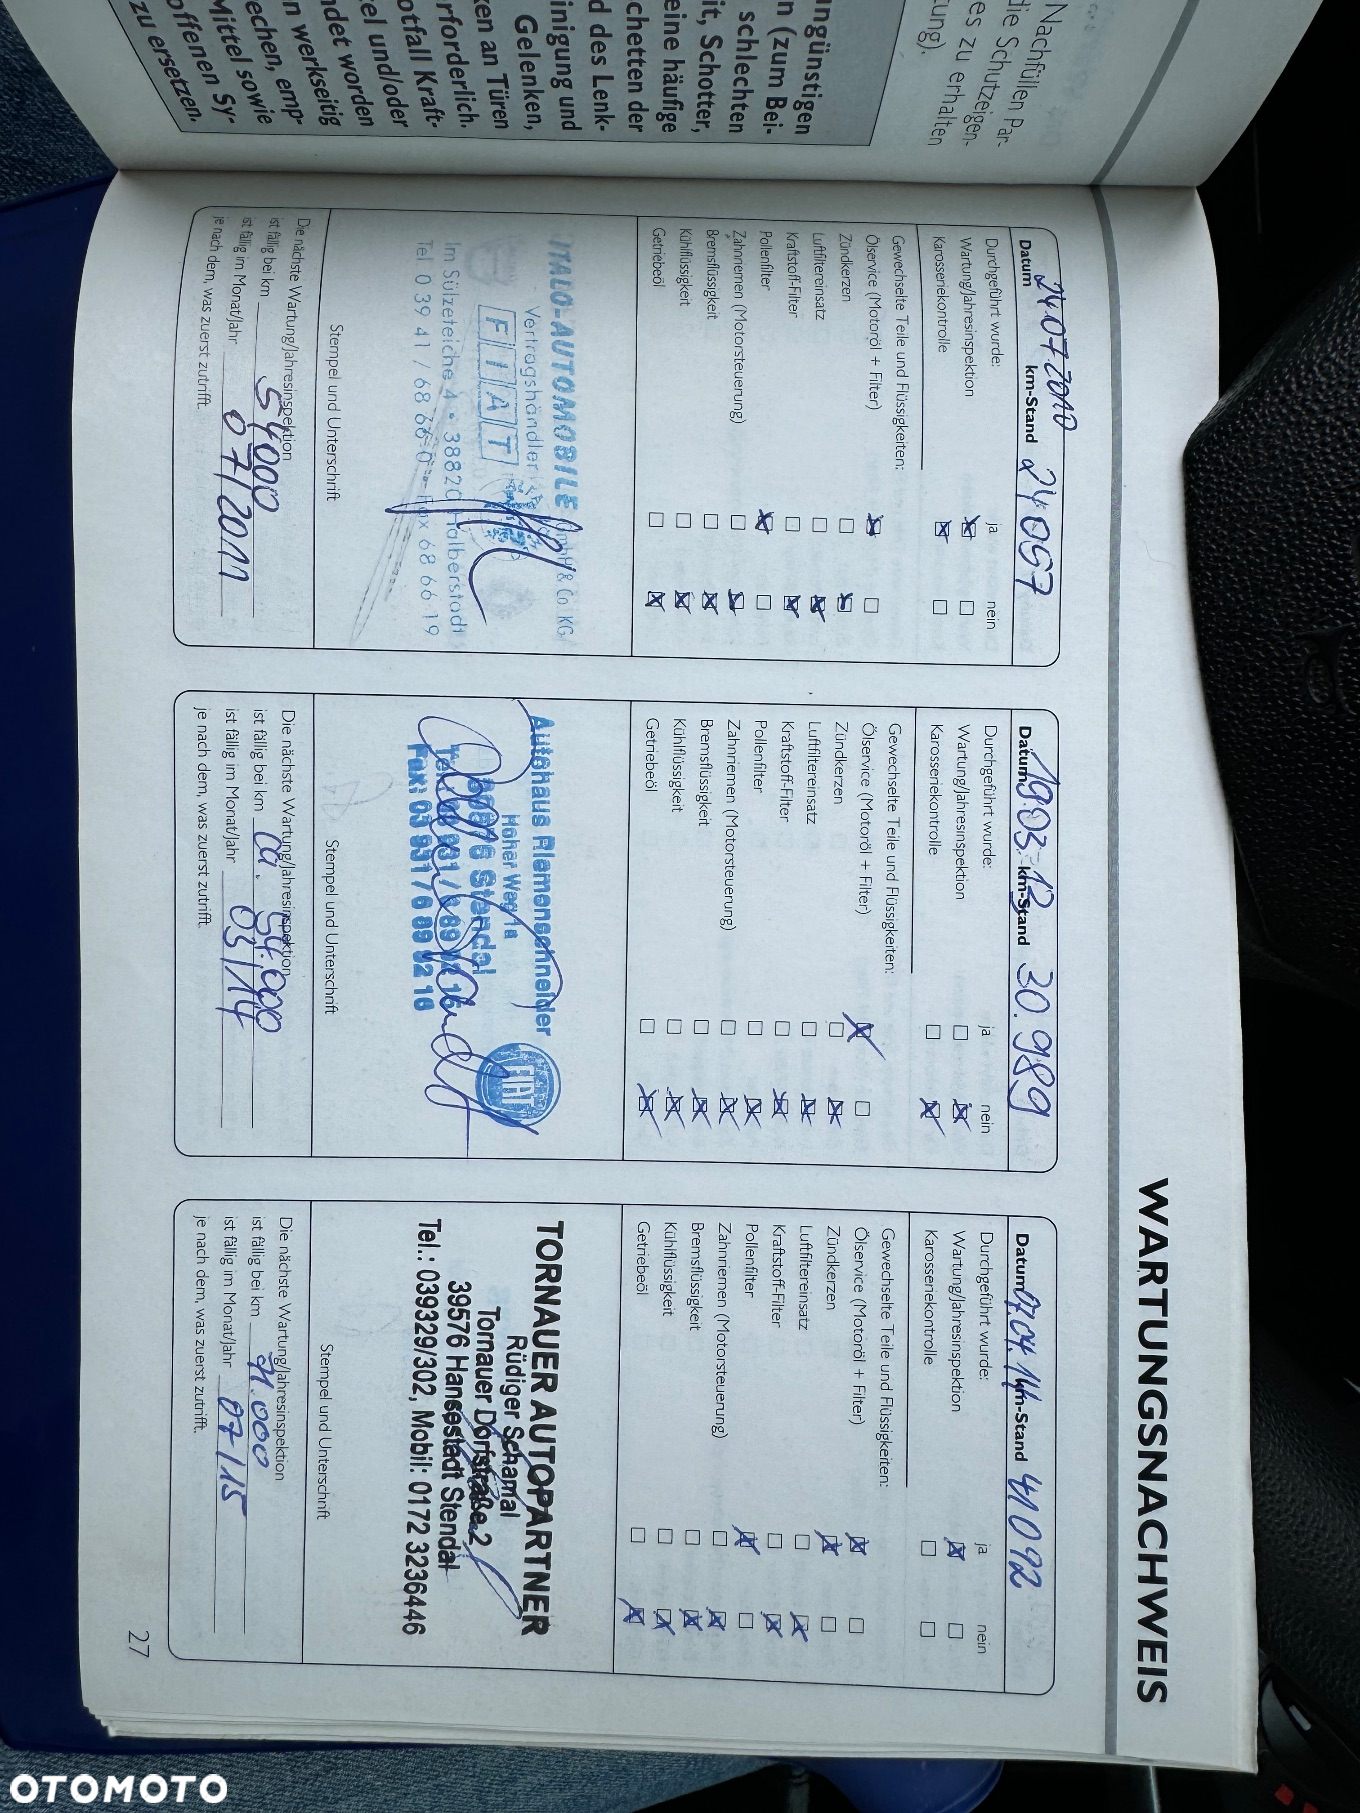 Nachfüllen Par-
die Schutzeigen-
es zu erhalten
tung).
ungünstigen
n (zum Bei-
schlechten
it, Schotter,
eine häufige
chetten der
d des Lenk-
inigung und
Gelenken,
ken an Türen
rforderlich.
otfall Kraft-
tel und/oder
ndet worden
n werkseitig
echen, emp-
Mittel sowie
offenen Sy-
zu ersetzen.
WARTUNGSNACHWEIS
Datum 24.07.2010 km-Stand 24057
Durchgeführt wurde: ja nein
Wartung/Jahresinspektion
Karosseriekontrolle
Gewechselte Teile und Flüssigkeiten:
Ölservice (Motoröl + Filter)
Zündkerzen
Luftfiltereinsatz
Kraftstoff-Filter
Pollenfilter
Zahnriemen (Motorsteuerung)
Bremsflüssigkeit
Kühlflüssigkeit
Getriebeöl
ITALO-AUTOMOBILE GmbH & Co KG
Vertragshändler
FIAT
Im Sülzeteiche 4 • 38820 Halberstadt
Tel. 0 39 41 / 68 66 0 - Fax 68 66 19
Stempel und Unterschrift
Die nächste Wartung/Jahresinspektion
ist fällig bei km 54000
ist fällig im Monat/Jahr 07/2011
je nach dem, was zuerst zutrifft.
Datum 19.03.12 km-Stand 30.989
Durchgeführt wurde: ja nein
Wartung/Jahresinspektion
Karosseriekontrolle
Gewechselte Teile und Flüssigkeiten:
Ölservice (Motoröl + Filter)
Zündkerzen
Luftfiltereinsatz
Kraftstoff-Filter
Pollenfilter
Zahnriemen (Motorsteuerung)
Bremsflüssigkeit
Kühlflüssigkeit
Getriebeöl
Autohaus Riemenschneider
Hoher Weg 1a
Stendal
FIAT
Fax: 03 931 / 6 89 82 16
Stempel und Unterschrift
Die nächste Wartung/Jahresinspektion
ist fällig bei km ca. 54.000
ist fällig im Monat/Jahr 03/14
je nach dem, was zuerst zutrifft.
Datum 07.04.14 km-Stand 41092
Durchgeführt wurde: ja nein
Wartung/Jahresinspektion
Karosseriekontrolle
Gewechselte Teile und Flüssigkeiten:
Ölservice (Motoröl + Filter)
Zündkerzen
Luftfiltereinsatz
Kraftstoff-Filter
Pollenfilter
Zahnriemen (Motorsteuerung)
Bremsflüssigkeit
Kühlflüssigkeit
Getriebeöl
TORNAUER AUTOPARTNER
Rüdiger Schamal
Tornauer Dorfstraße 2
39576 Hansestadt Stendal
Tel.: 039329/302, Mobil: 0172 3236446
Stempel und Unterschrift
Die nächste Wartung/Jahresinspektion
ist fällig bei km 71.000
ist fällig im Monat/Jahr 07/15
je nach dem, was zuerst zutrifft.
27
OTOMOTO